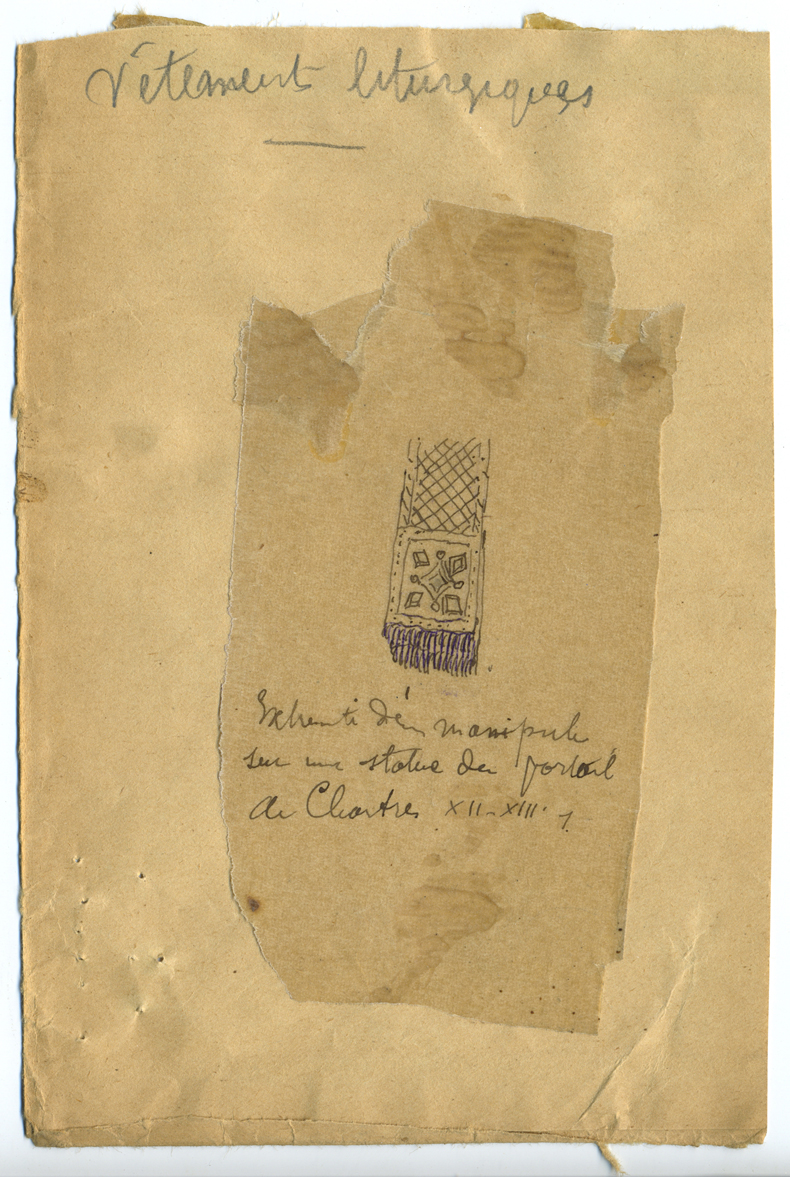 Vêtements liturgiques
Extremité d'un manipule
sur une statue du portail
de Chartres XII-XIII